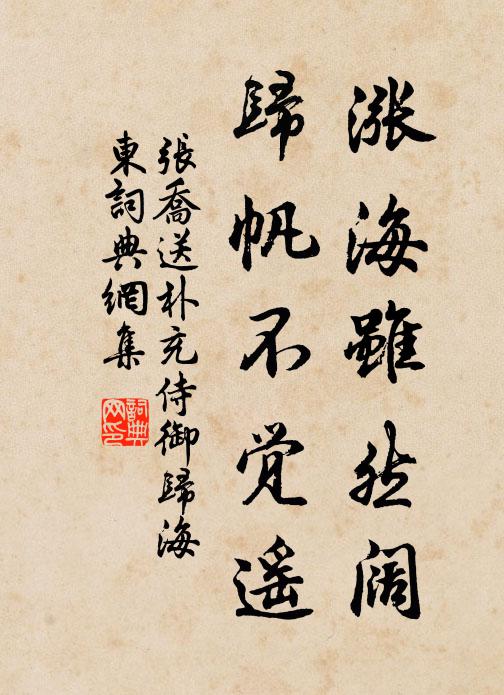 漲海雖然阔
歸帆不觉遥
張喬送朴充侍御歸海
東詞典網集
詞典网印